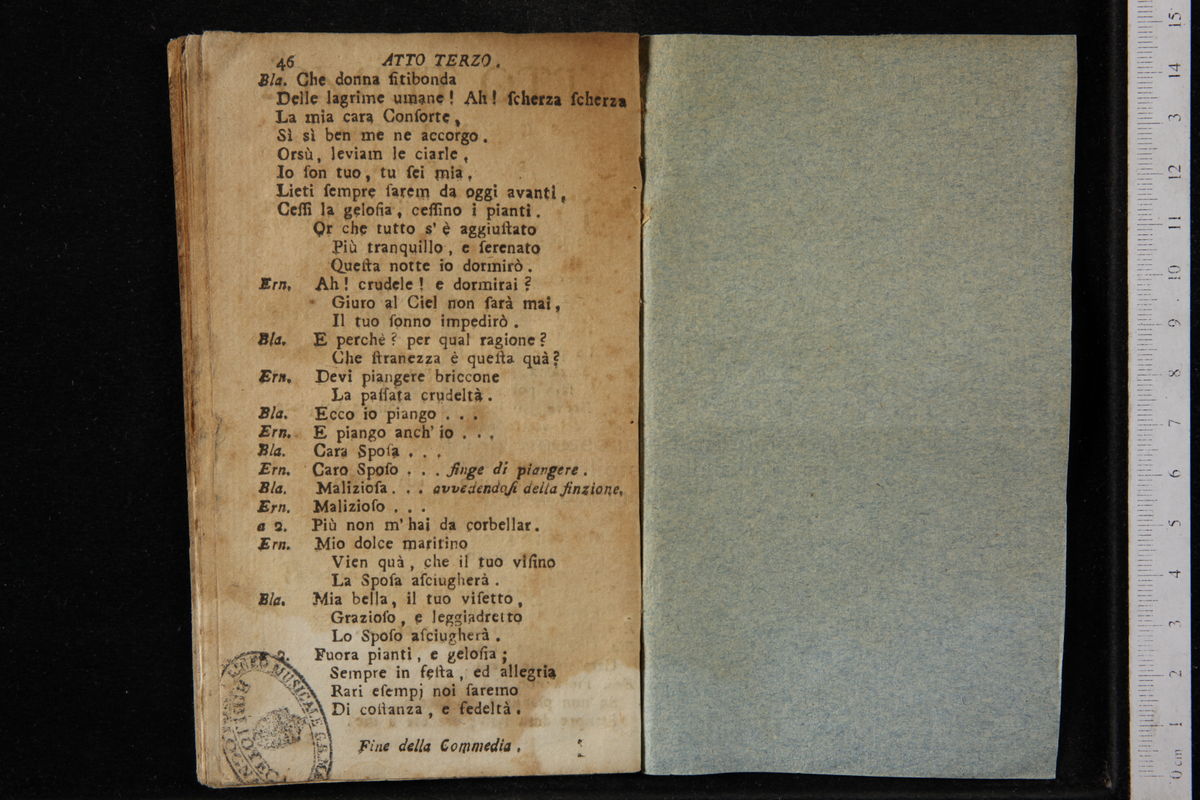 46 ATTO TERZO.
Bla. Che donna ſitibonda
Delle lagrime umane! Ah! ſcherza ſcherza
La mia cara Conſorte,
Sì sì ben me ne accorgo.
Orsù, leviam le ciarle,
Io ſon tuo, tu ſei mia,
Lieti ſempre ſarem da oggi avanti,
Ceſſi la geloſia, ceſſino i pianti.
Or che tutto s' è aggiuſtato
Più tranquillo, e ſerenato
Queſta notte io dormirò.
Ern. Ah! crudele! e dormirai?
Giuro al Ciel non ſarà mai,
Il tuo ſonno impedirò.
Bla. E perchè? per qual ragione?
Che ſtranezza è queſta quà?
Ern. Devi piangere briccone
La paſſata crudeltà.
Bla. Ecco io piango . . .
Ern. E piango anch' io . . .
Bla. Cara Spoſa . . .
Ern. Caro Spoſo . . . finge di piangere.
Bla. Malizioſa . . . avvedendoſi della finzione,
Ern. Malizioſo . . .
a 2. Più non m' hai da corbellar.
Ern. Mio dolce maritino
Vien quà, che il tuo viſino
La Spoſa aſciugherà.
Bla. Mia bella, il tuo viſetto,
Grazioſo, e leggiadretto
Lo Spoſo aſciugherà.
2. Fuora pianti, e geloſia;
Sempre in feſta, ed allegria
Rari eſempj noi ſaremo
Di coſtanza, e fedeltà.
Fine della Commedia.
MUSICALE
0 cm 1 2 3 4 5 6 7 8 9 10 11 12 3 14 15